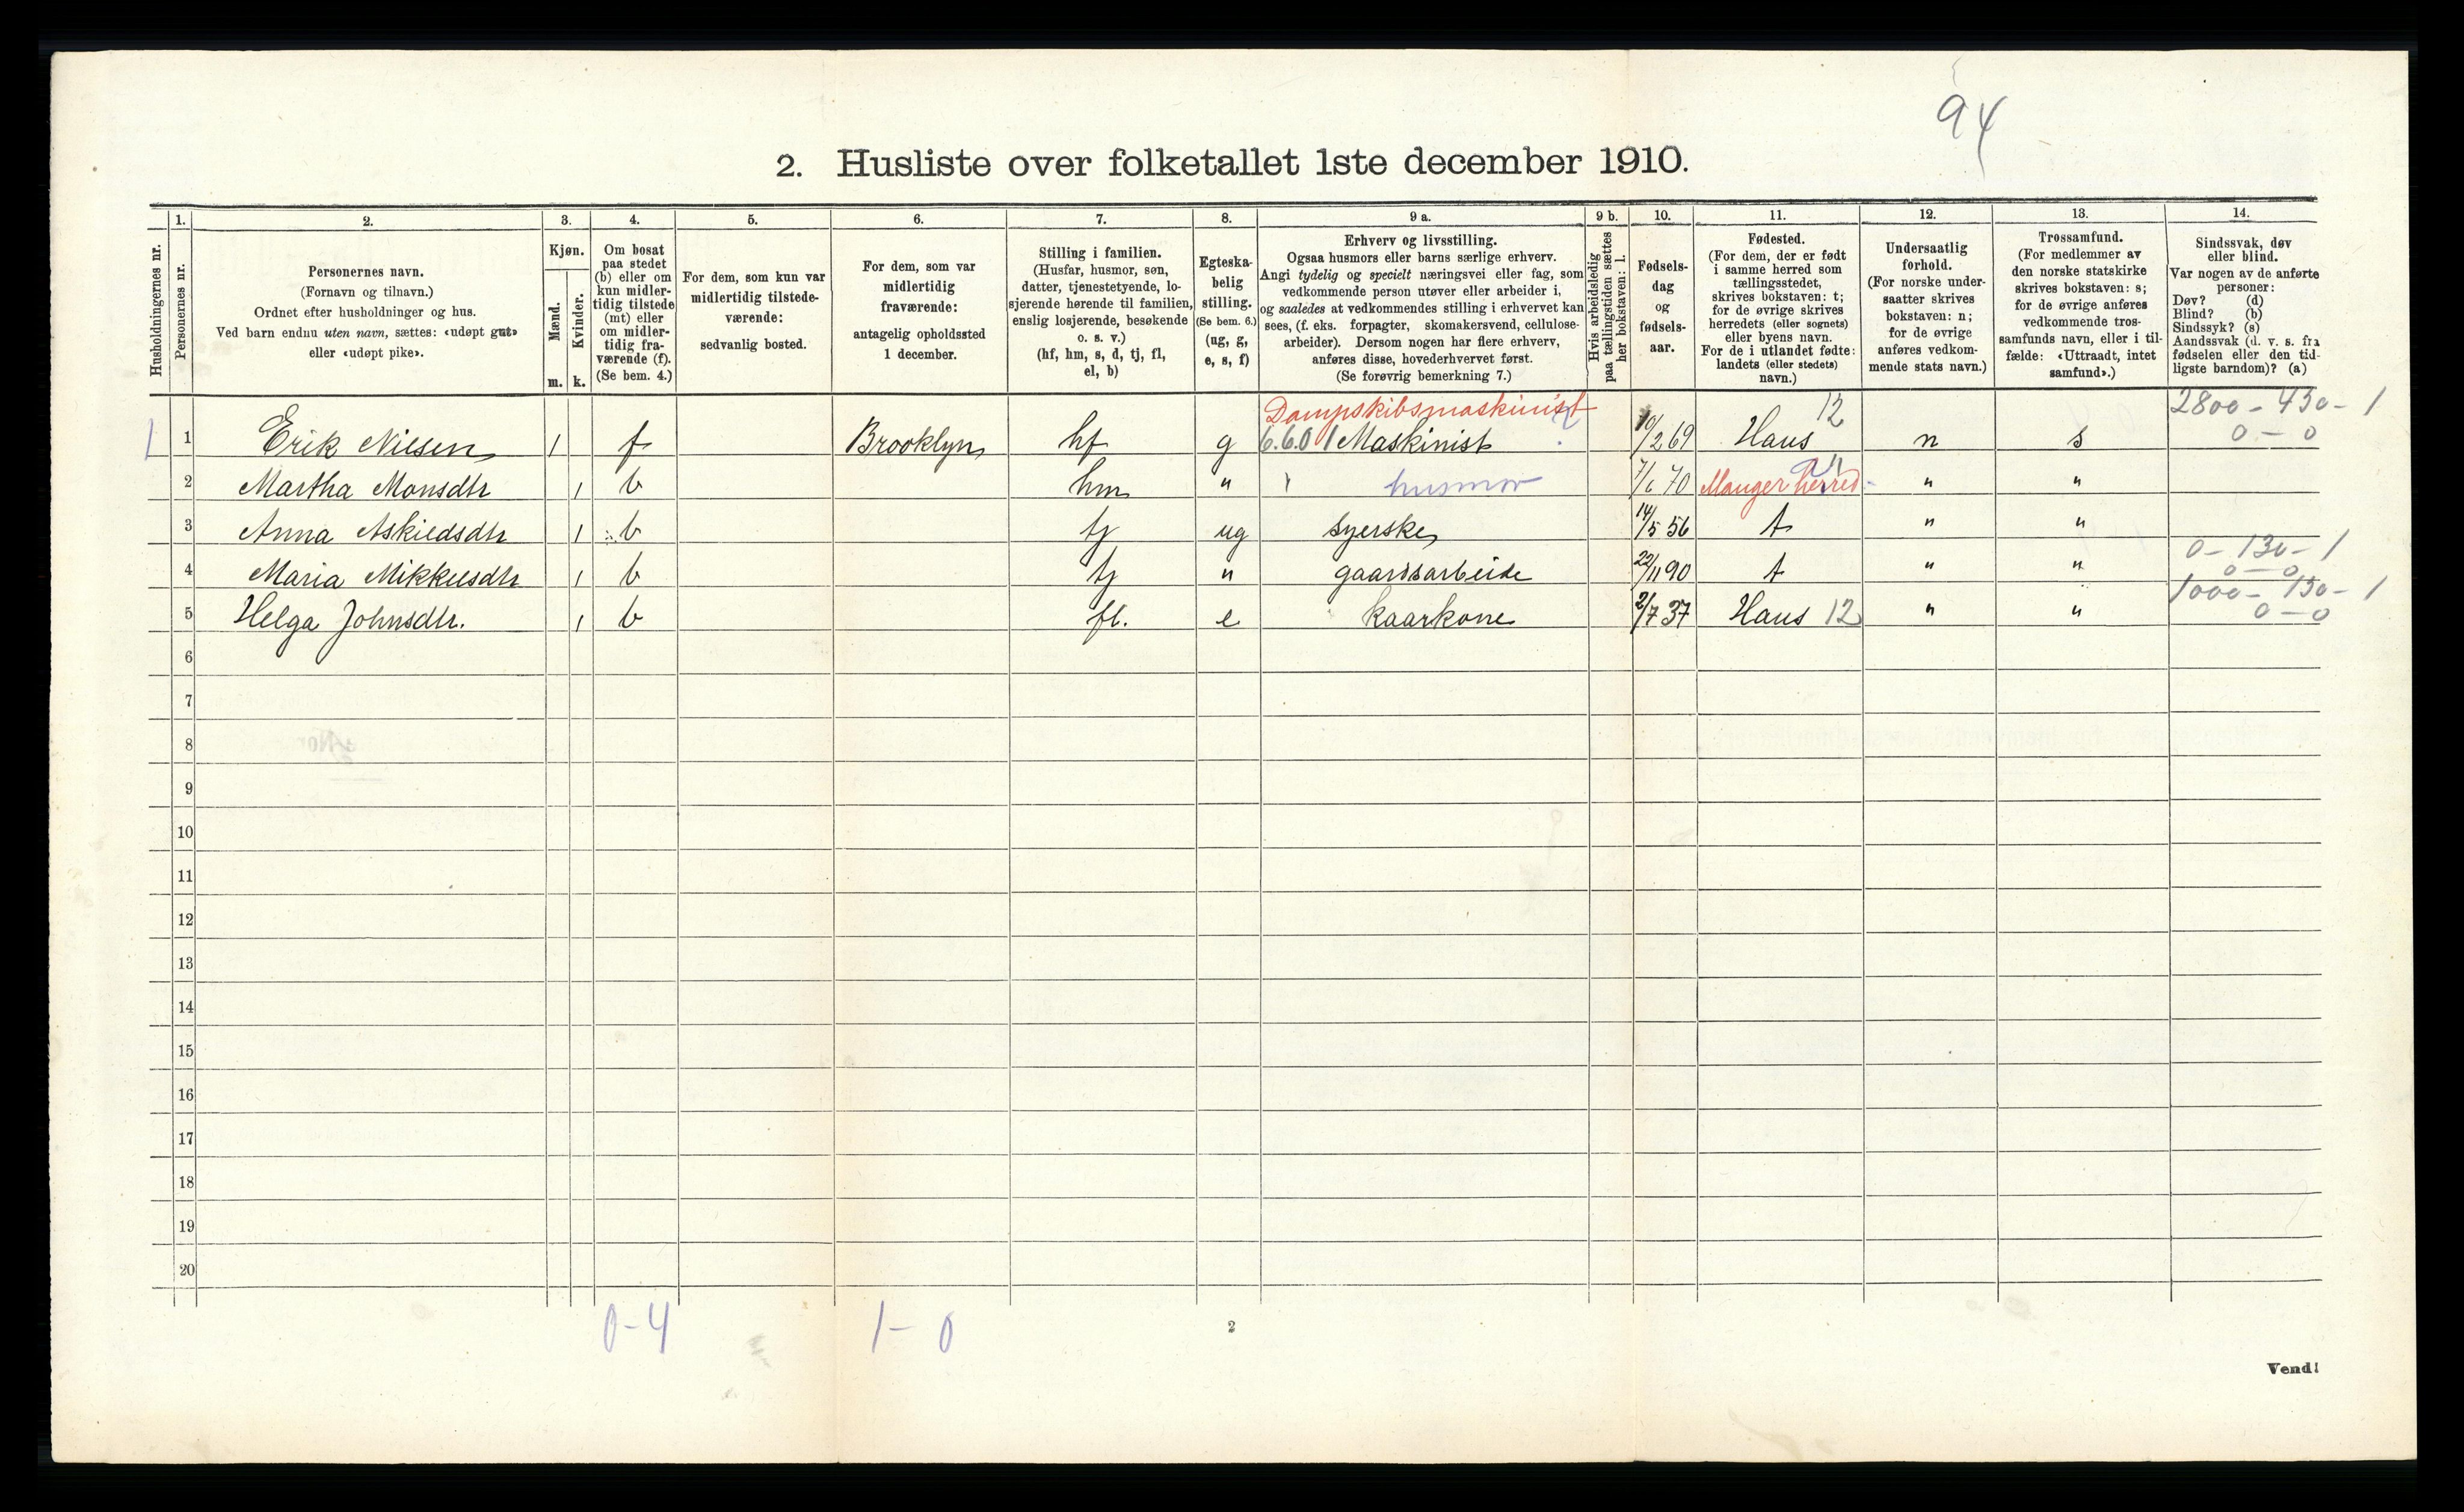 94
2. Husliste over folketallet 1ste december 1910.
Husholdningernes nr.
1.
Personernes nr.
2.
Personernes navn.
(Fornavn og tilnavn.)
Ordnet efter husholdninger og hus.
Ved barn endnu uten navn, sættes: «udøpt gut»
eller «udøpt pike».
3.
Kjøn.
Mænd.
Kvinder.
m. k.
4.
Om bosat
paa stedet
(b) eller om
kun midler-
tidig tilstede
(mt) eller
om midler-
tidig fra-
værende (f).
(Se bem. 4.)
5.
For dem, som kun var
midlertidig tilstede-
værende:
sedvanlig bosted.
6.
For dem, som var
midlertidig
fraværende:
antagelig opholdssted
1 december.
7.
Stilling i familien.
(Husfar, husmor, søn,
datter, tjenestetyende, lo-
sjerende hørende til familien,
enslig losjerende, besøkende
o. s. v.)
(hf, hm, s, d, tj, fl,
el, b)
8.
Egteska-
belig
stilling.
(Se bem. 6.)
(ug, g,
e, s, f)
9 a.
Erhverv og livsstilling.
Ogsaa husmors eller barns særlige erhverv.
Angi tydelig og specielt næringsvei eller fag, som
vedkommende person utøver eller arbeider i,
og saaledes at vedkommendes stilling i erhvervet kan
sees, (f. eks. forpagter, skomakersvend, cellulose-
arbeider). Dersom nogen har flere erhverv,
anføres disse, hovederhvervet først.
(Se forøvrig bemerkning 7.)
9 b.
Hvis arbeidsledig
paa tællingstiden sættes
her bokstaven: l.
10.
Fødsels-
dag
og
fødsels-
aar.
11.
Fødested.
(For dem, der er født
i samme herred som
tællingsstedet,
skrives bokstaven: t;
for de øvrige skrives
herredets (eller sognets)
eller byens navn.
For de i utlandet fødte:
landets (eller stedets)
navn.)
12.
Undersaatlig
forhold.
(For norske under-
saatter skrives
bokstaven: n;
for de øvrige
anføres vedkom-
mende stats navn.)
13.
Trossamfund.
(For medlemmer av
den norske statskirke
skrives bokstaven: s;
for de øvrige anføres
vedkommende tros-
samfunds navn, eller i til-
fælde: «Uttraadt, intet
samfund».)
14.
Sindssvak, døv
eller blind.
Var nogen av de anførte
personer:
Døv? (d)
Blind? (b)
Sindssyk? (s)
Aandssvak (d. v. s. fra
fødselen eller den tid-
ligste barndom)? (a)
Dampskibsmaskinist 12 2800 - 430 - 1
1 1 Erik Nilsen 1 f Brooklyn hf g 6.6.0 1 Maskinist ? 10/2 69 Haus n s 0 - 0
2 Martha Monsdtr 1 b hm " husmor 7/6 70 Manger herred " "
3 Anna Askildsdtr 1 b tj ug Syerske 14/5 56 t " "
0 - 130 - 1
4 Maria Mikkelsdtr 1 b tj " gaardsarbeide 22/11 90 t " " 0 - 0
1000 - 150 - 1
5 Helga Johnsdtr. 1 b fl. e kaarkone 2/7 37 Haus 12 " " 0 - 0
6
7
8
9
10
11
12
13
14
15
16
17
18
19
20
0-4 1-0
2
Vend!